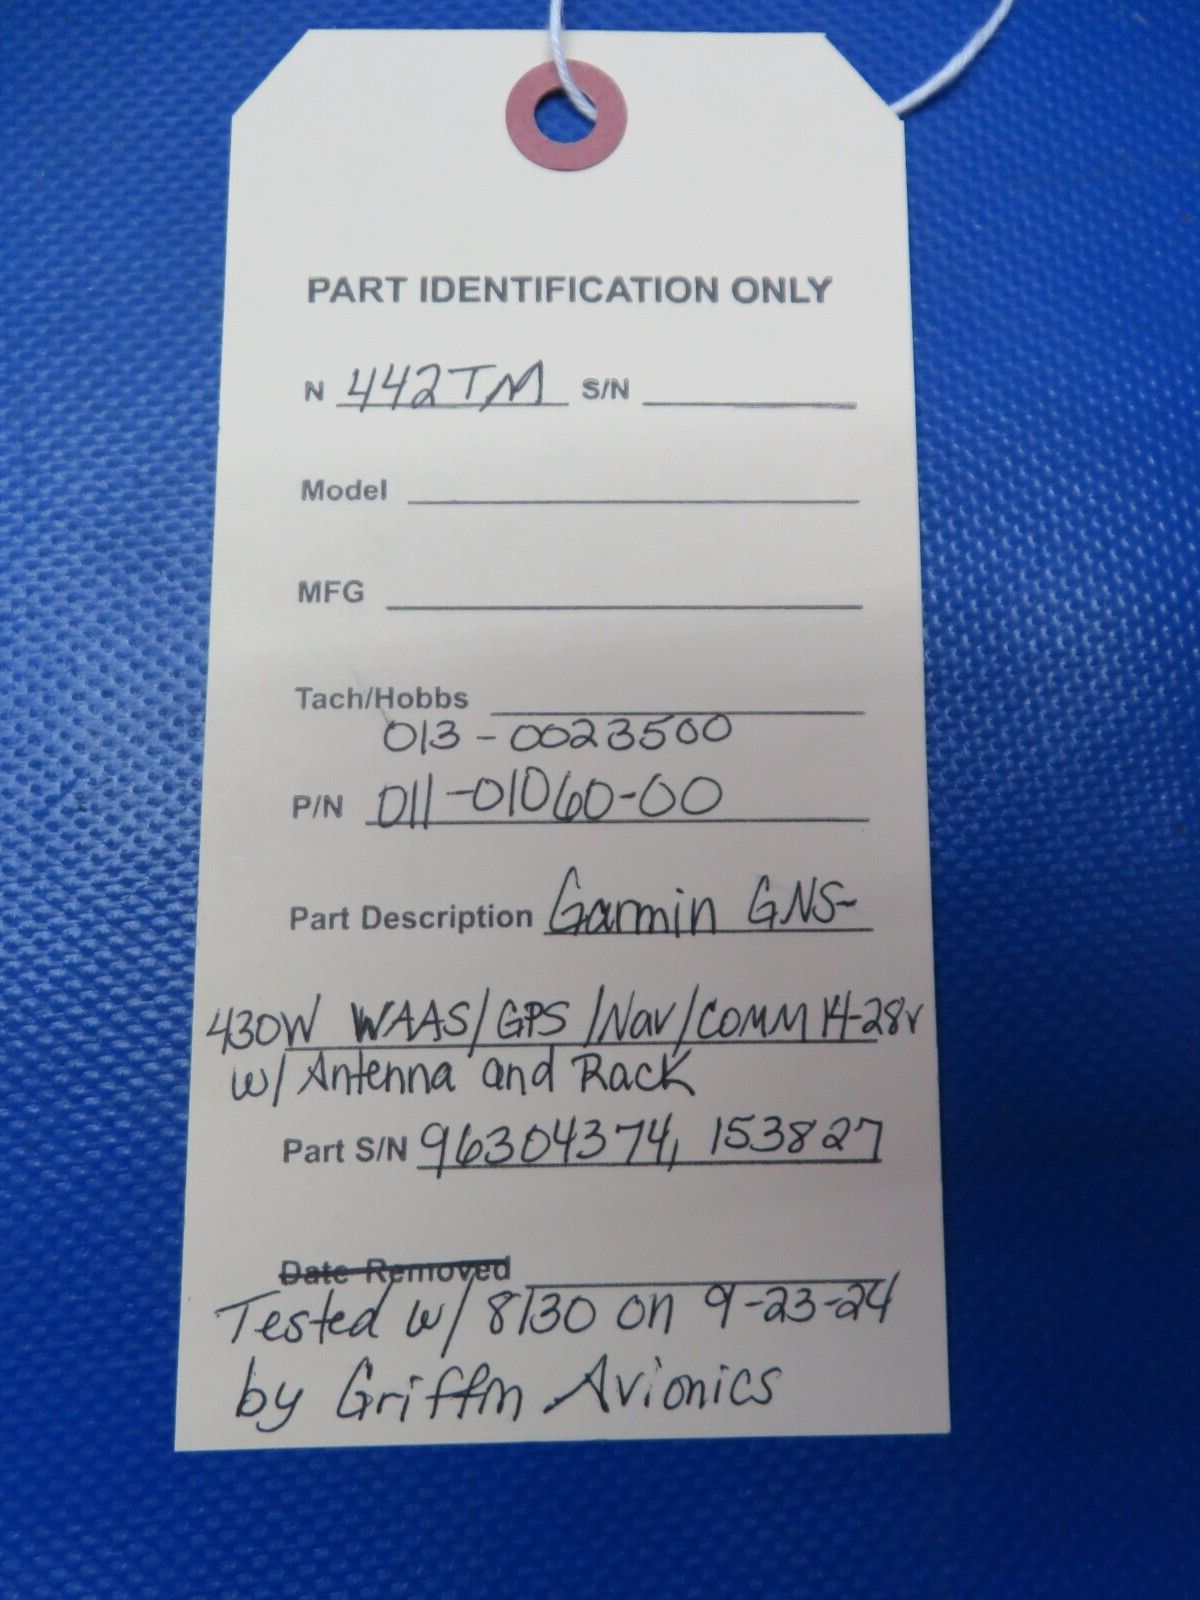 PART IDENTIFICATION ONLY
N 442TM S/N
Model
MFG
Tach/Hobbs
013-0023500
P/N 011-01060-00
Part Description Garmin GNS-
430W WAAS/GPS/Nav/COMM 14-28v
w/ Antenna and Rack
Part S/N 96304374, 153827
Date Removed
Tested w/ 8130 on 9-23-24
by Griffin Avionics